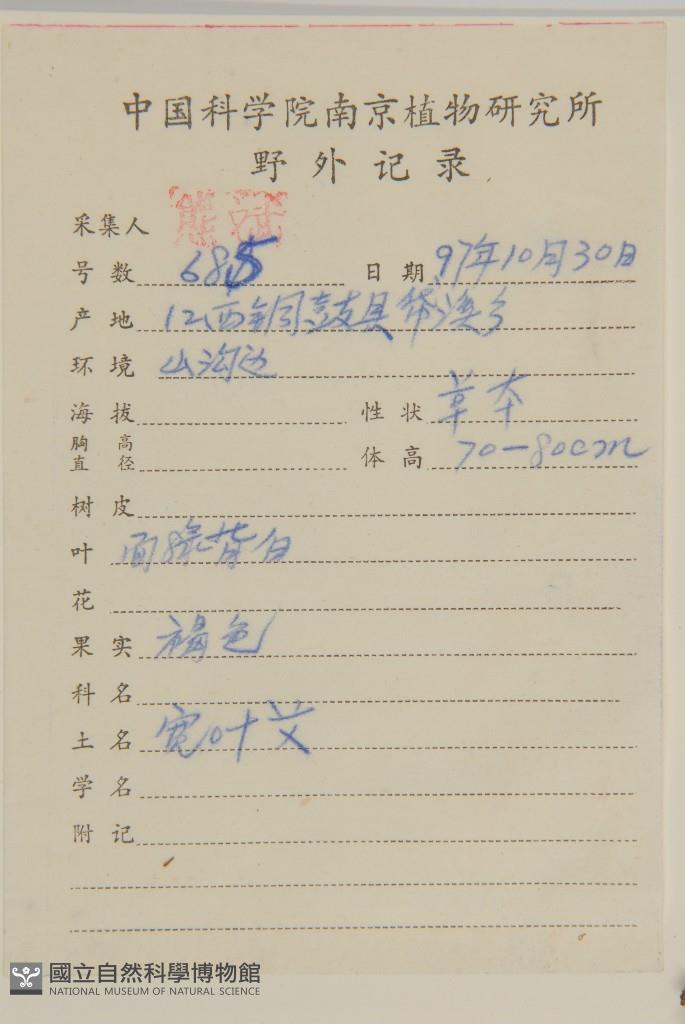 中国科学院南京植物研究所
野外记录
采集人 熊
号数 6815 日期 97年10月30日
产地 江西铜鼓县带溪乡
环境 山沟边
海拔 性状 草本
胸高直径 体高 70—80cm
树皮
叶 面绿背白
花
果实 褐色
科名
土名 宽叶艾
学名
附记
國立自然科學博物館
NATIONAL MUSEUM OF NATURAL SCIENCE